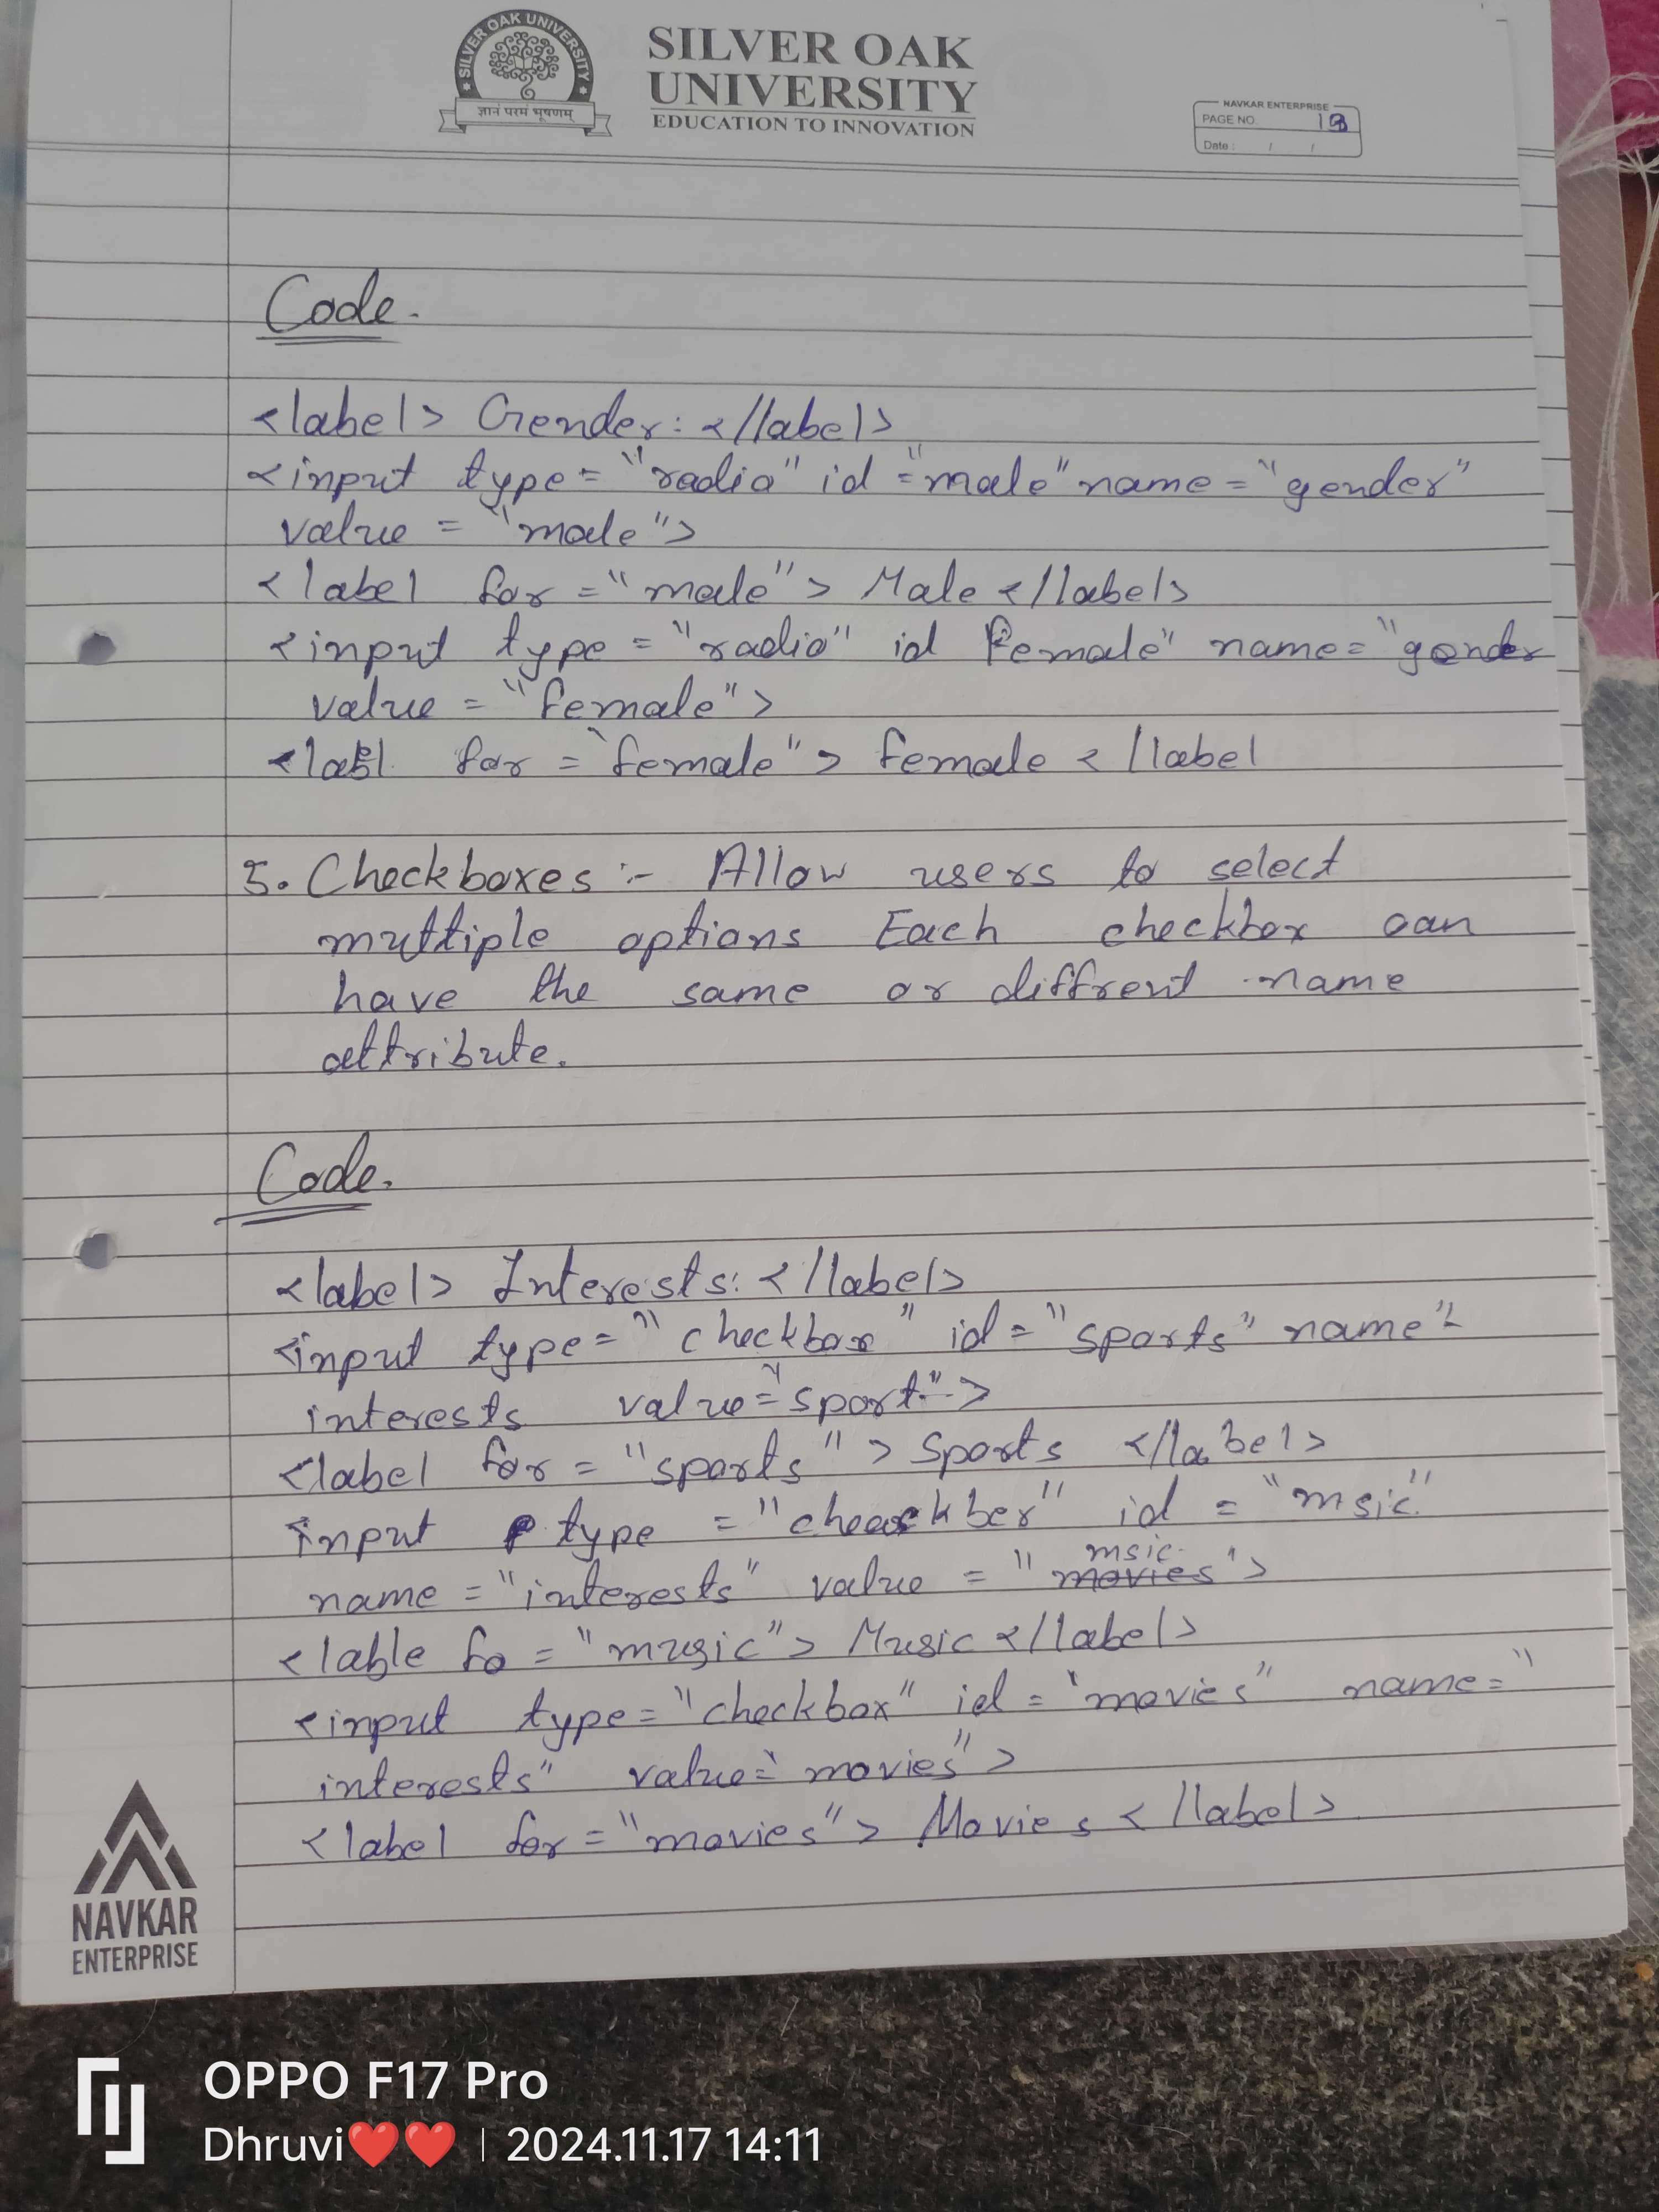 SILVER OAK UNIVERSITY
ज्ञानं परमं भूषणम्
SILVER OAK
UNIVERSITY
EDUCATION TO INNOVATION
NAVKAR ENTERPRISE
PAGE NO.
Date : / /
Code.
<label> Gender: </label>
<input type= "radio" id ="male" name = "gender"
value = "male">
<label for = "male"> Male </label>
<input type = "radio" id Female" name= "gender
value = "female">
<labl for = `female"> female < /label
5. Checkboxes :- Allow users to select
multiple options Each checkbox can
have the same or diffrent name
attribute.
Code.
<label> Interests: </label>
<input type= "checkbox" id = "sports" name"
interests value="sport">
<label for = "sports"> Sports </label>
<input type = "checkber" id = "msic"
name = "interests" value = " msic movies">
<lable fo = "music"> Music </label>
<input type= "checkbox" id = `movies" name= "
interests" value=`movies">
<label for = "movies"> Movies < /label>
NAVKAR
ENTERPRISE
OPPO F17 Pro
Dhruvi❤️❤️ | 2024.11.17 14:11